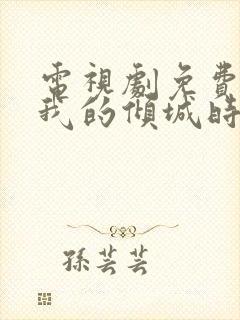 電視劇免費
我的傾城時
孫芸芸